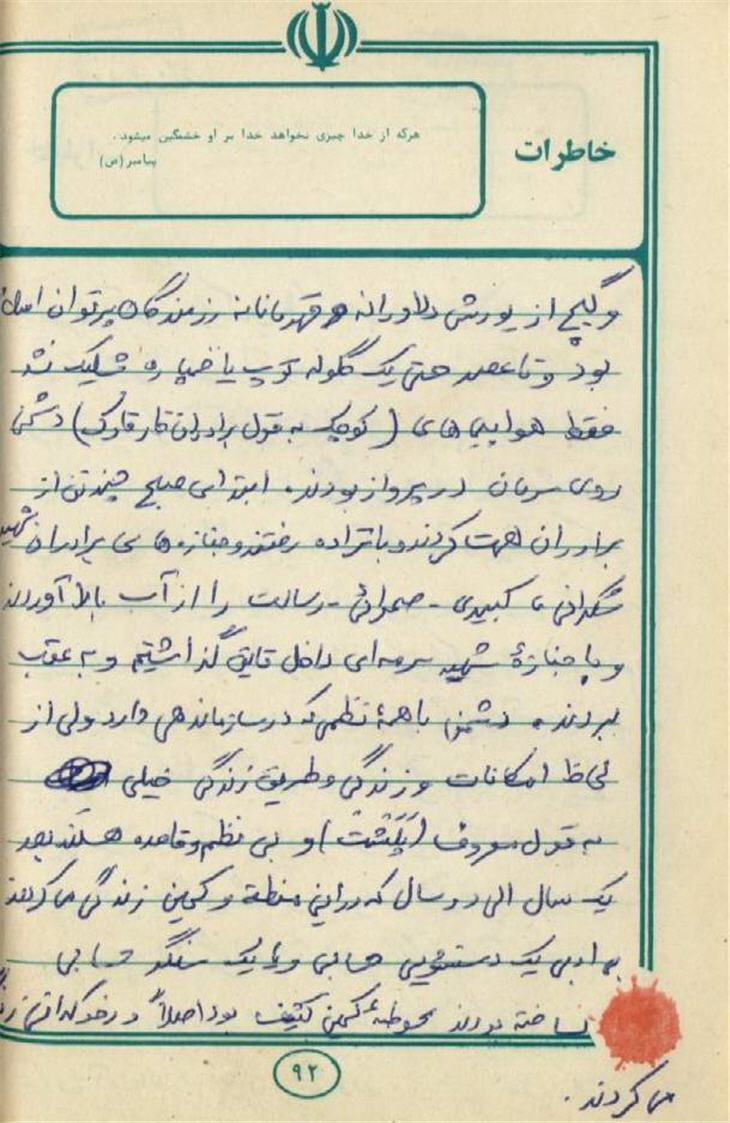 خاطرات
هرکه از خدا چیزی نخواهد خدا بر او خشمگین میشود.
پیامبر(ص)
و گیج از یورش دلاورانه و قهرمانانه رزمندگان پرتوان اسلام
بود و تا عصر حتی یک گلوله توپ یا خمپاره شلیک نشد
فقط هواپیماهای (کوچک به قول برادران قارقارک) دشمن
روی سرمان در پرواز بودند. ابتدای صبح چند تن از
برادران همت کردند و با تراده رفتند و جنازه های برادران شهید
کبیری - صحرائی - رسالت را از آب بالا آوردند
و با جنازهٔ شهید سرمه‌ای داخل قایق گذاشتیم و به عقب
بردند. دشمن با همهٔ نظمی که در سازماندهی دارد ولی از
لحاظ امکانات و زندگی و طریق زندگی خیلی
به قول معروف (پَلَشت) و بی نظم و قاعده هستند بعد
یک سال الی دو سال که در این منطقه و کمین زندگی می کردند
یک دستشویی حسابی و یا یک سنگر حسابی
نساخته بودند محوطهٔ کمین کثیف بود اصلاً در خوکدانی
می کردند.
۹۲